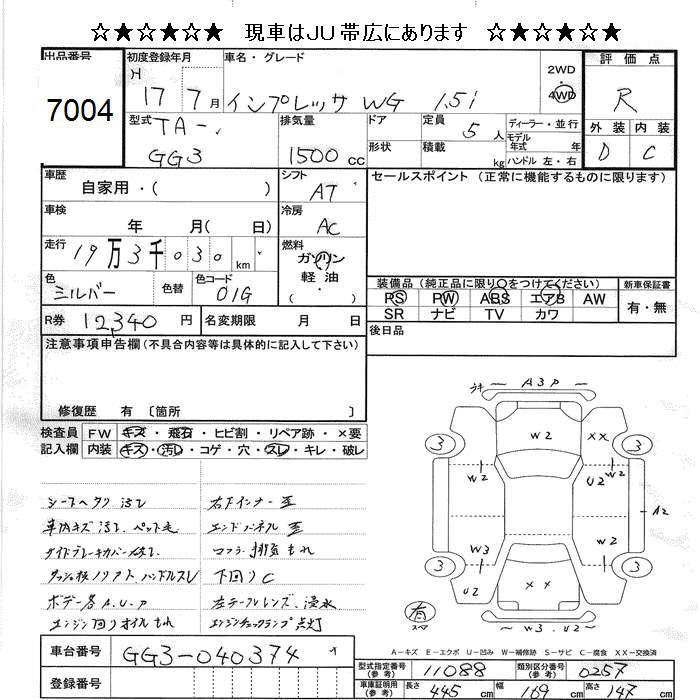 ☆★☆★☆★ 現車はJU帯広にあります ☆★☆★☆★
出品番号
7004
初度登録年月
H 17 7月
車名・グレード
インプレッサ WG 1.5i
2WD
・
4WD
評価点
R
外装 内装
D C
型式
TA-
GG3
排気量
1500 cc
ドア
形状
定員
5人
積載
kg
ディーラー・並行
モデル
年式 年
ハンドル 左・右
車歴
自家用・( )
シフト
AT
セールスポイント (正常に機能するものに限ります)
車検
年 月( 日)
冷房
AC
走行
19万3千030km
燃料
ガソリン
軽油
( )
色
シルバー
色替
色コード
01G
装備品 (純正品に限り○をつけてください)
PS PW ABS エアB AW
SR ナビ TV カワ
新車保証書
有・無
R券
12,340円
名変期限 月 日
後日品
注意事項申告欄(不具合内容等は具体的に記入して下さい)
修復歴 有 〔箇所 〕
検査員
記入欄
FW キズ・飛石・ヒビ割・リペア跡・×要
内装 キズ・汚レ・コゲ・穴・スレ・キレ・破レ
シートヘタリ 汚レ
車内キズ 汚レ、ペット毛
サイドブレーキカバー
ハンドルスレ
ボデー各A.U.P
エンジン回りオイルもれ
右下インナー
エンドパネル
マフラー排気もれ
下回りC
左テールレンズ、浸水
エンジンチェックランプ点灯
A3P
W2
XX
3
3
W2
U2
W2
A2
W3
W2
3
3
U2
XX
W3.U2
有
A-キズ E-エクボ U-凹み W-補修跡 S-サビ C-腐食 XX-交換済
車台番号
GG3-040374
登録番号
型式指定番号
(参考)
11088
類別区分番号
(参考)
0257
車庫証明用
(参考)
長さ 445cm
幅 169cm
高さ 147cm